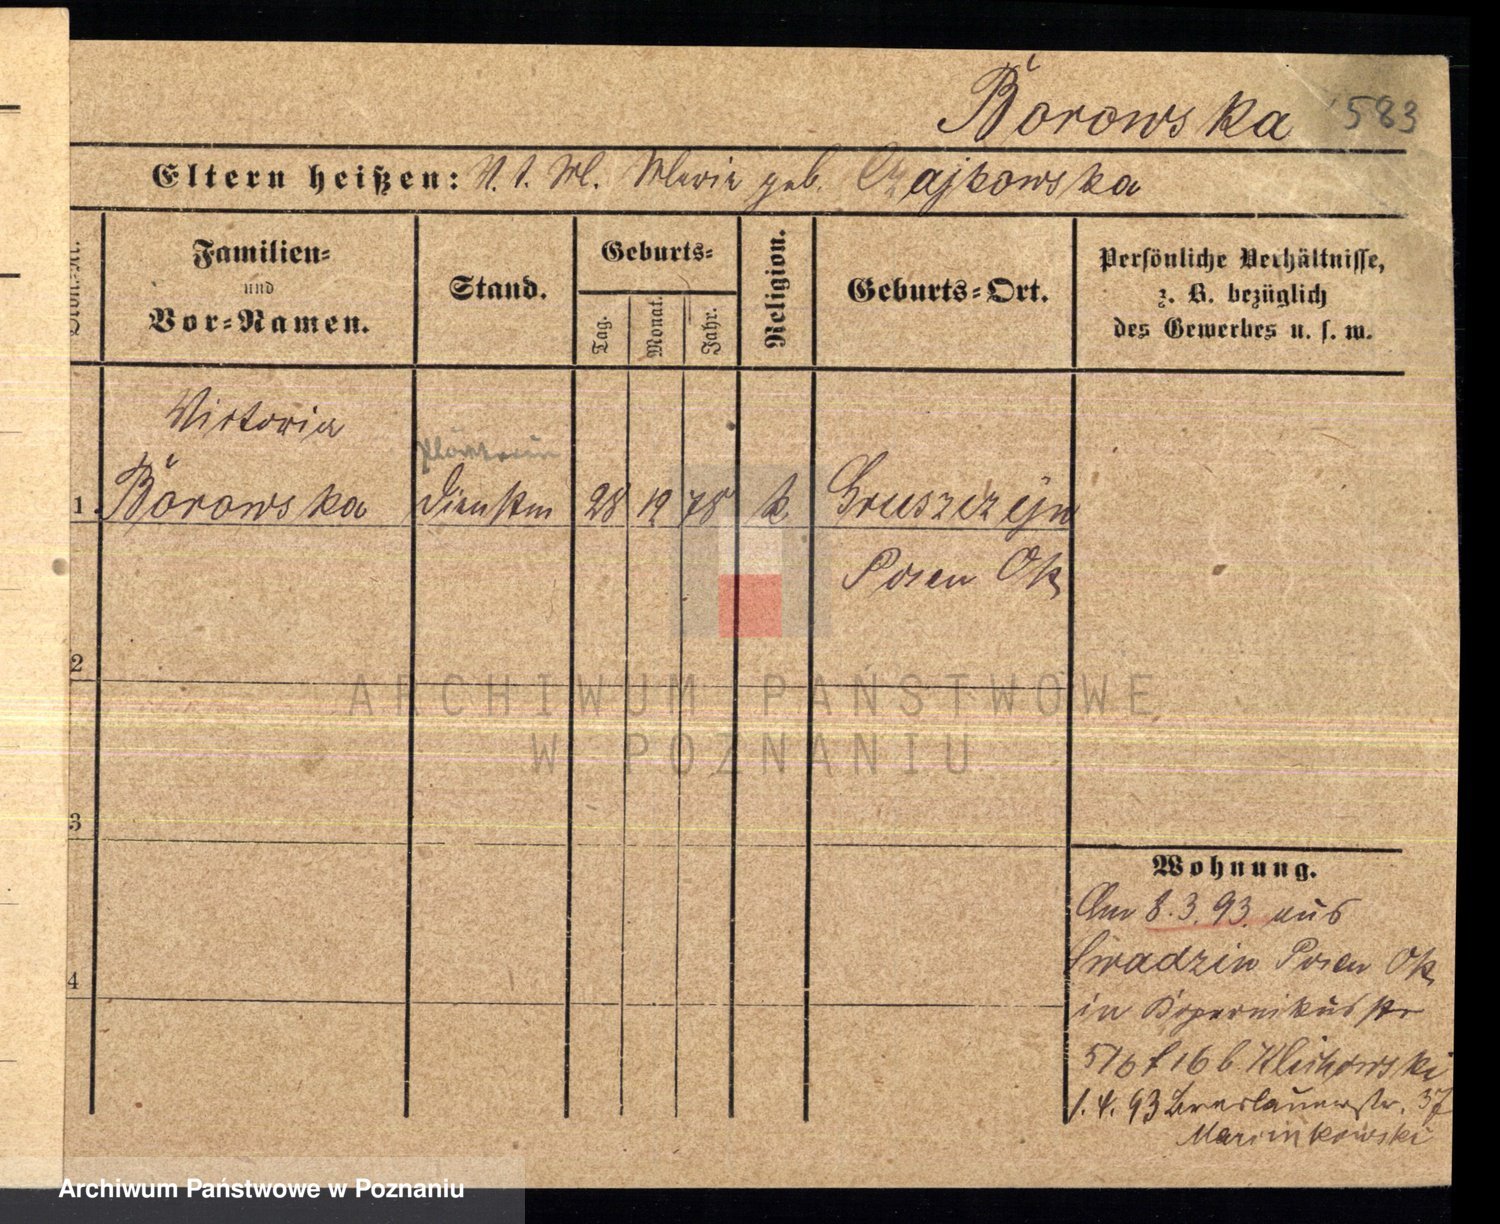 Borowska 583
Eltern heißen: Marie geb. Czajkowska
Familien=
und
Vor=Namen.
Stand.
Geburts=
Tag.
Monat.
Jahr.
Religion.
Geburts=Ort.
Persönliche Verhältnisse,
z. B. bezüglich
des Gewerbes u. s. w.
Victoria
1 Borowska Dienstm 28 12 78 k Gruszczyn
Posen Ost
2
3
4
Wohnung.
Am 8.3.93. aus
Swadzin Posen
in Kopernikusstr
5/6 b
1.4.93 Breslauerstr. 37
Marcinkowski
ARCHIWUM PAŃSTWOWE
W POZNANIU
Archiwum Państwowe w Poznaniu